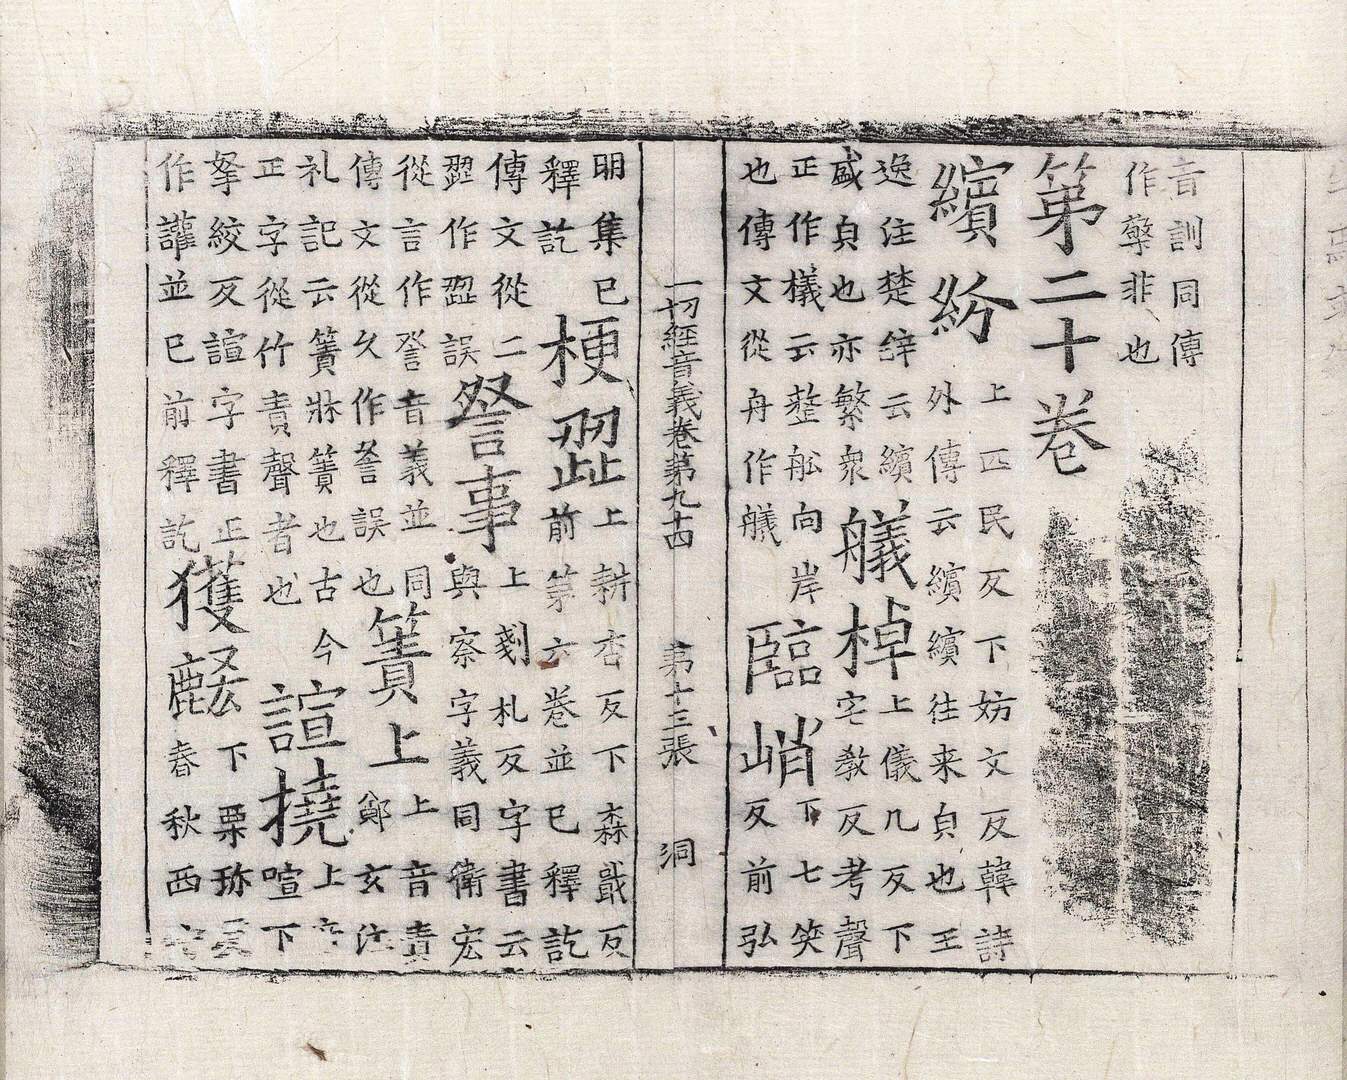 音訓同傳
作擎非也
第二十卷
繽紛
上匹民反下妨文反韓詩
外傳云繽繽往来皃也王
逸注楚辝云繽
盛皃也亦繁衆
艤棹
上儀几反下
宅教反考聲
正作檥云整舩向岸
也傳文從舟作艤
臨峭
下七笑
反前弘
一切經音義卷第九十四 第十三張 洞
明集已
釋訖
梗歰
上耕杏反下森戢反
前第六卷並已釋訖
傳文從二
歰作歰誤
詧事
上剗札反字書云
與察字義同衛宏
從言作詧音義並同
傳文從夂作詧誤也
簀上
上音責
鄭玄注
礼記云簀牀簀也古今
正字從竹責聲者也
諠撓
上音
喧下
拏絞反諠字書正
作讙並已前釋訖
獲
下栗珎反
春秋西